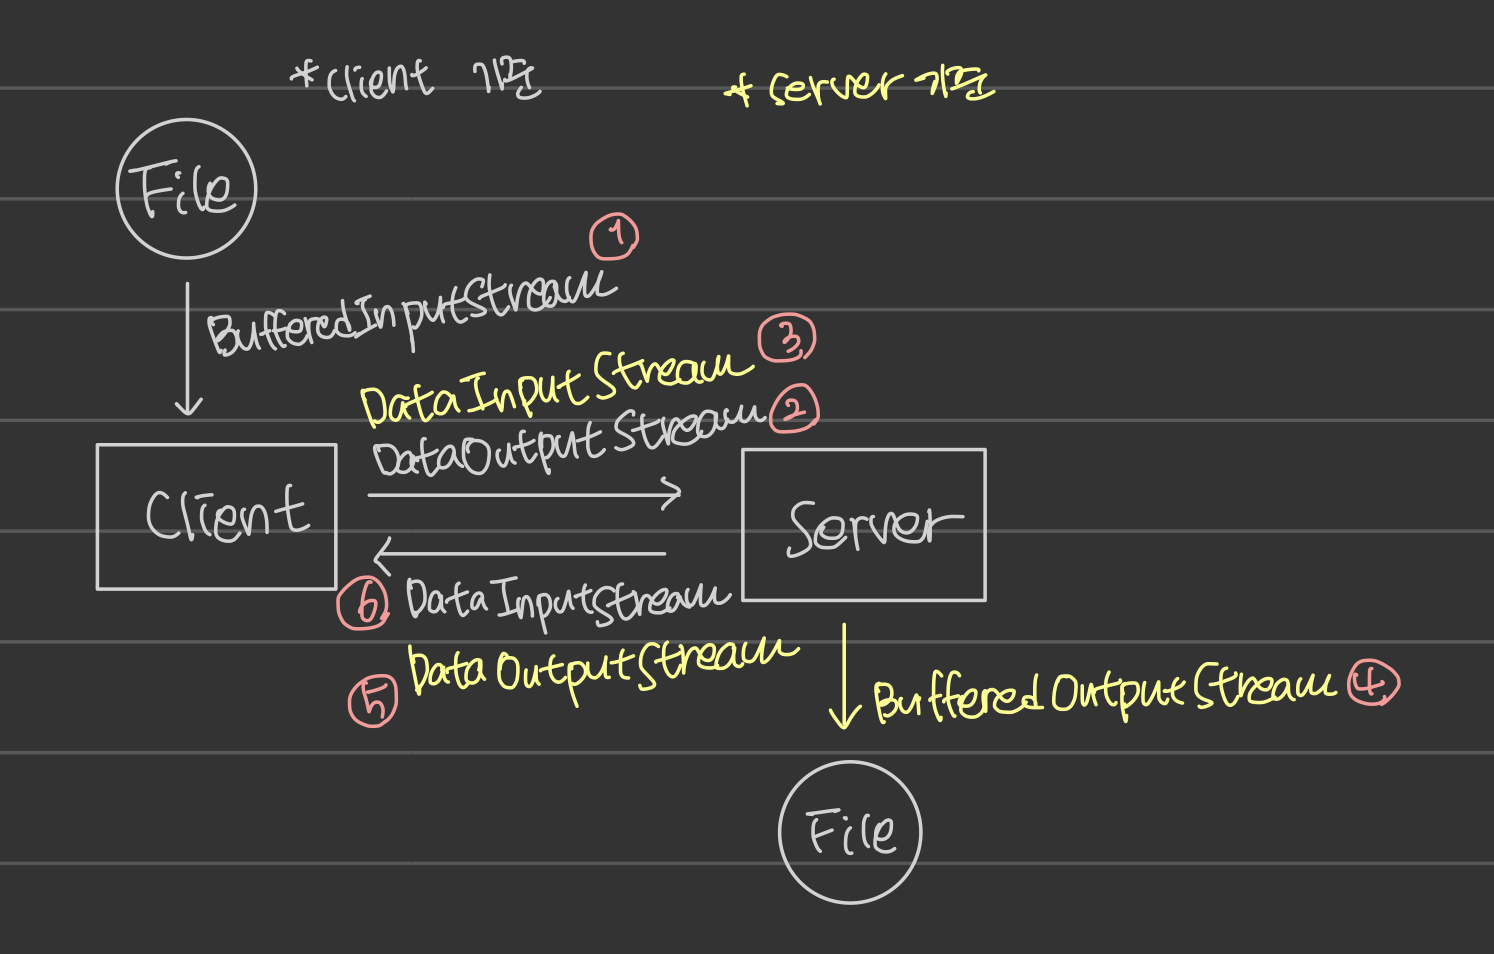 *Client 기준
* Server 기준
File
①
BufferedInputStream
DataInputStream ③
DataOutputStream ②
Client
Server
⑥ DataInputStream
⑤ DataOutputStream
BufferedOutputStream ④
File